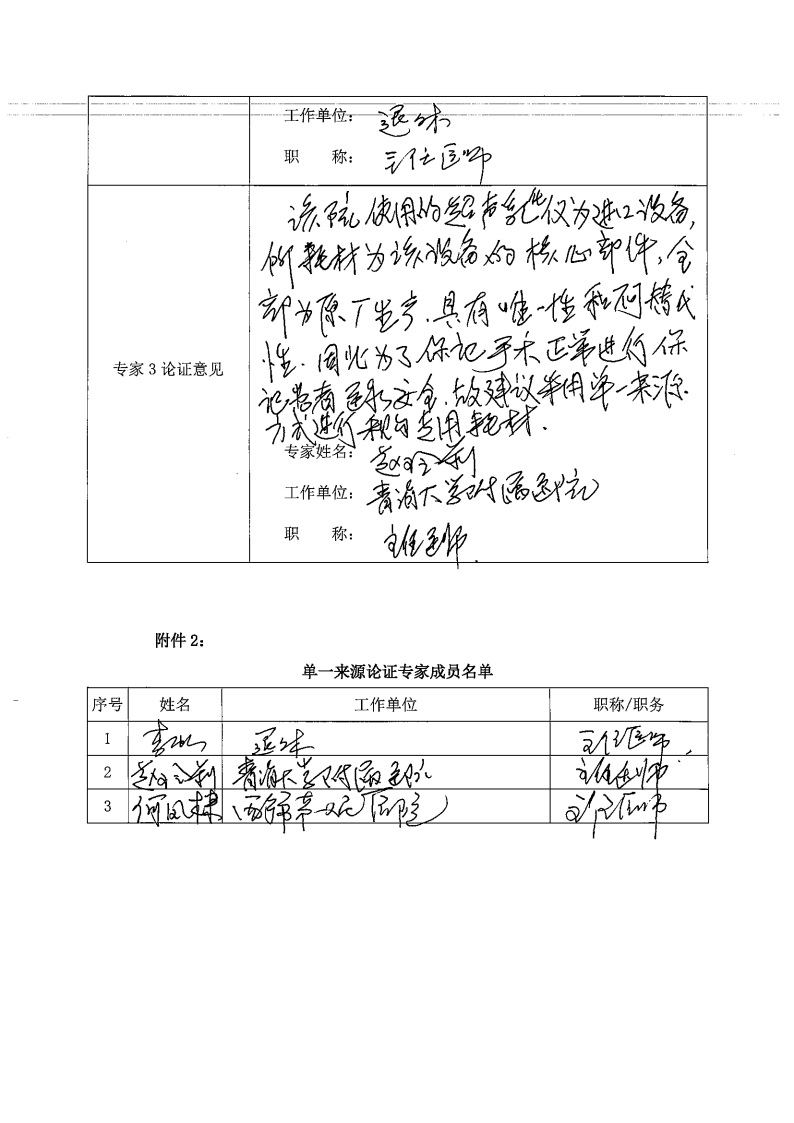 工作单位： 退休
职 称： 主任医师
该院使用的超声乳化仪为进口设备,
所耗材为该设备的核心部件,全
部为原厂生产.具有唯一性和不可替代
性.因此为了保证手术正常进行保
证患者医疗安全.故建议采用单一来源
专家3论证意见
方式进行采购专用耗材.
专家姓名： 赵
工作单位： 青海大学附属医院
职 称： 主任医师
附件 2：
单一来源论证专家成员名单
序号 姓名 工作单位 职称/职务
1 李 退休 主任医师
2 赵 青海大学附属医院 主任医师
3 何凤 西宁市第一人民医院 主任医师